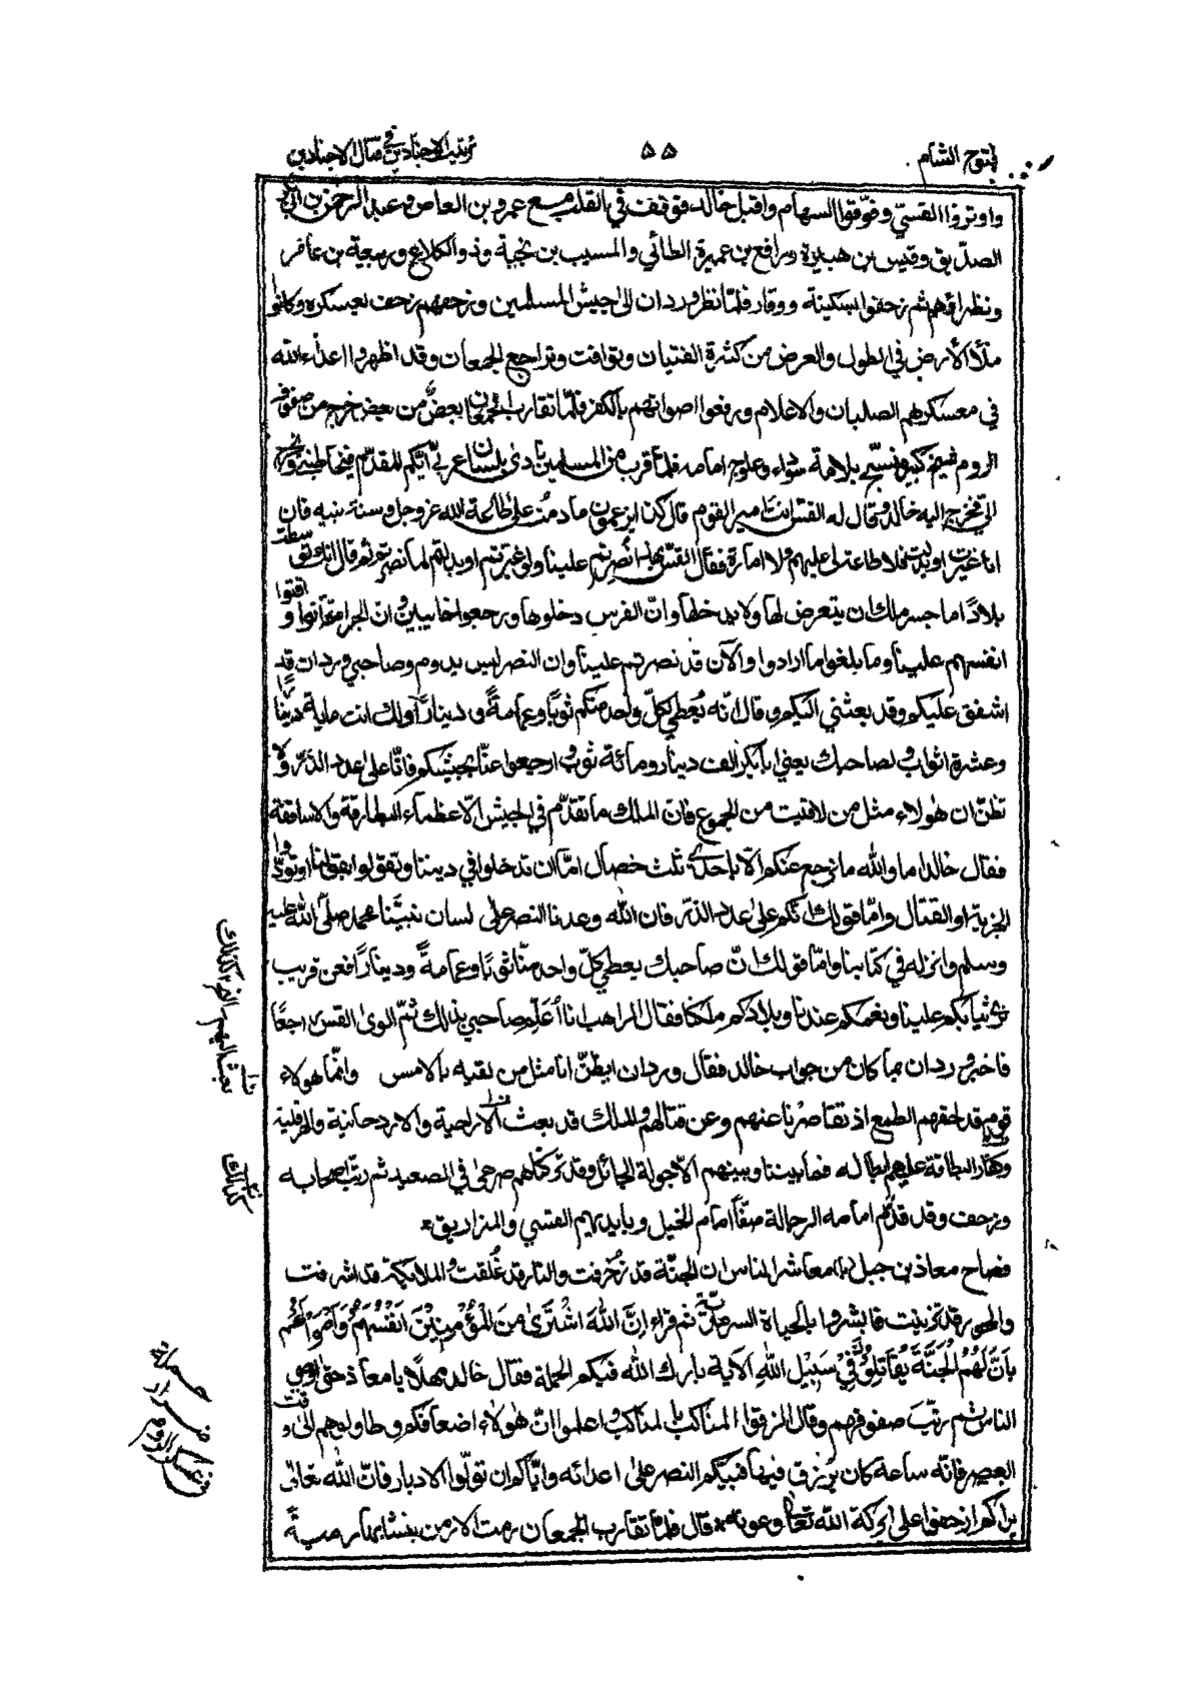 فتوح الشام
٥٥
ترتيب الاجنادين في قتال الاجنادين
واوتروا القسيّ وفوّقوا السهام واقبل خالد فوقف في القلب مع عمرو بن العاص وعبد الرحمن بن ابي بكر
الصدّيق وقيس بن هبيرة ورافع بن عميرة الطائي والمسيب بن نجبة وذو الكلاع وربيعة بن عامر
ونظراؤهم ثم زحفوا بسكينة ووقار فلمّا نظر وردان الى جيش المسلمين وزحفهم زحف بعسكره وكانوا
ملأ الأرض في الطول والعرض من كثرة الفتيان وتوافت وتراجع الجمعان وقد اظهروا اعداء الله
في معسكرهم الصلبان والاعلام ورفعوا اصواتهم بالكفر فلمّا تقارب الجمعان بعضٌ من بعض خرج من صفوف
الروم شيخ كبير بلامة سوداء وعلوج امامه فلما قرب من المسلمين نادى بلسان عربيّ ايّكم المقدّم فيخاطبني ويخرج
اليّ فخرج اليه خالد وقال له القسّ انت امير القوم قال كذا يزعمون ما دمتُ على طاعة الله عز وجل وسنة نبيه فان
انا غيرت او بدلت فلا طاعة لي عليهم ولا امارة فقال القسّ بهذا نُصِرتم علينا ولو غيرتم او بدلتم لما نصرتم ثم قال انك توسطت
بلادًا ما جسر ملك ان يتعرض لها ولا يدخلها وانّ الفرس دخلوها ورجعوا خايبين وانّ الجرامقة اتوا وافنوا
انفسهم علينا وما بلغوا ما ارادوا والآن قد نصرتم علينا وان النصر ليس يدوم وصاحبي وردان قد
اشفق عليكم وقد بعثني اليكم وقال انه يُعطي كلّ واحد منكم ثوبًا وعمامةً ودينارًا ولك انت ماية دينار
وعشرة اثواب ولصاحبك يعني ابا بكر الف دينار ومائة ثوب وارجعوا عنّا بجيشكم فانّا على عدد الذرّ ولا
تظنّ ان هؤلاء مثل من لاقيت من الجموع فان الملك ما تقدّم في الجيش الّا عظماء البطارقة والاساقفة
فقال خالد اما والله ما نرجع عنكم الّا باحدى ثلث خصال امّا ان تدخلوا في ديننا وتقولوا بقولنا او تؤدّوا
الجزية او القتال وامّا قولك انكم على عدد الذرّ فان الله وعدنا النصر على لسان نبيّنا محمد صلّى الله عليه
وسلم وانزله في كتابنا وامّا قولك انّ صاحبك يعطي كلّ واحد منّا ثوبًا وعمامةً ودينارًا فعن قريب
نرى ثيابكم علينا ونعمكم عندنا وبلادكم ملكنا فقال الراهب انا اُعلم صاحبي بذلك ثمّ الوى القس راجعًا
فاخبر وردان بما كان من جواب خالد فقال وردان ايظنّ انا مثل من لقيه بالامس وانّما هولاء
قوم قد لحقهم الطمع اذ تقاصرنا عنهم وعن قتالهم والملك قد بعث الاراجية والاردحانية والهرقلية
ابطاله فما بيننا وبينهم الّا جولة الجائل وقد تركناهم صرعى في الصعيد ثم رتّب اصحابه
وزحف وقد قدّم امامه الرجالة صفًّا امام الخيل وبايديهم القسي والمزاريق
فصاح معاذ بن جبل يا معاشر الناس ان الجنّة قد زُخرفت والنار قد غُلقت والملايكة قد اشرفت
والحور قد تزينت فابشروا بالحياة السرمديّة ثم قراء اِنَّ اللهَ اشْتَرَى مِنَ الْمُؤْمِنِيْنَ اَنْفُسَهُمْ وَاَمْوَالَهُمْ
بِاَنَّ لَهُمُ الْجَنَّةَ يُقَاتِلُوْنَ فِيْ سَبِيْلِ اللهِ الآية بارك الله فيكم الحملة فقال خالد مهلًا يا معاذ حتى اوصي
الناس ثم رتّب صفوفهم وقال الزقوا المناكب بالمناكب واعلموا انّ هؤلاء اضعافكم وطاولوهم الى وقت
العصر فانّه ساعة كان يُرزق فيها نبيّكم النصر على اعدائه وايّاكم ان تولّوا الادبار فانّ الله تعالى
يراكم ازحفوا على بركة الله تعالى وعونه قال فلمّا تقارب الجمعان رمت الارمن بنشابها رميةً